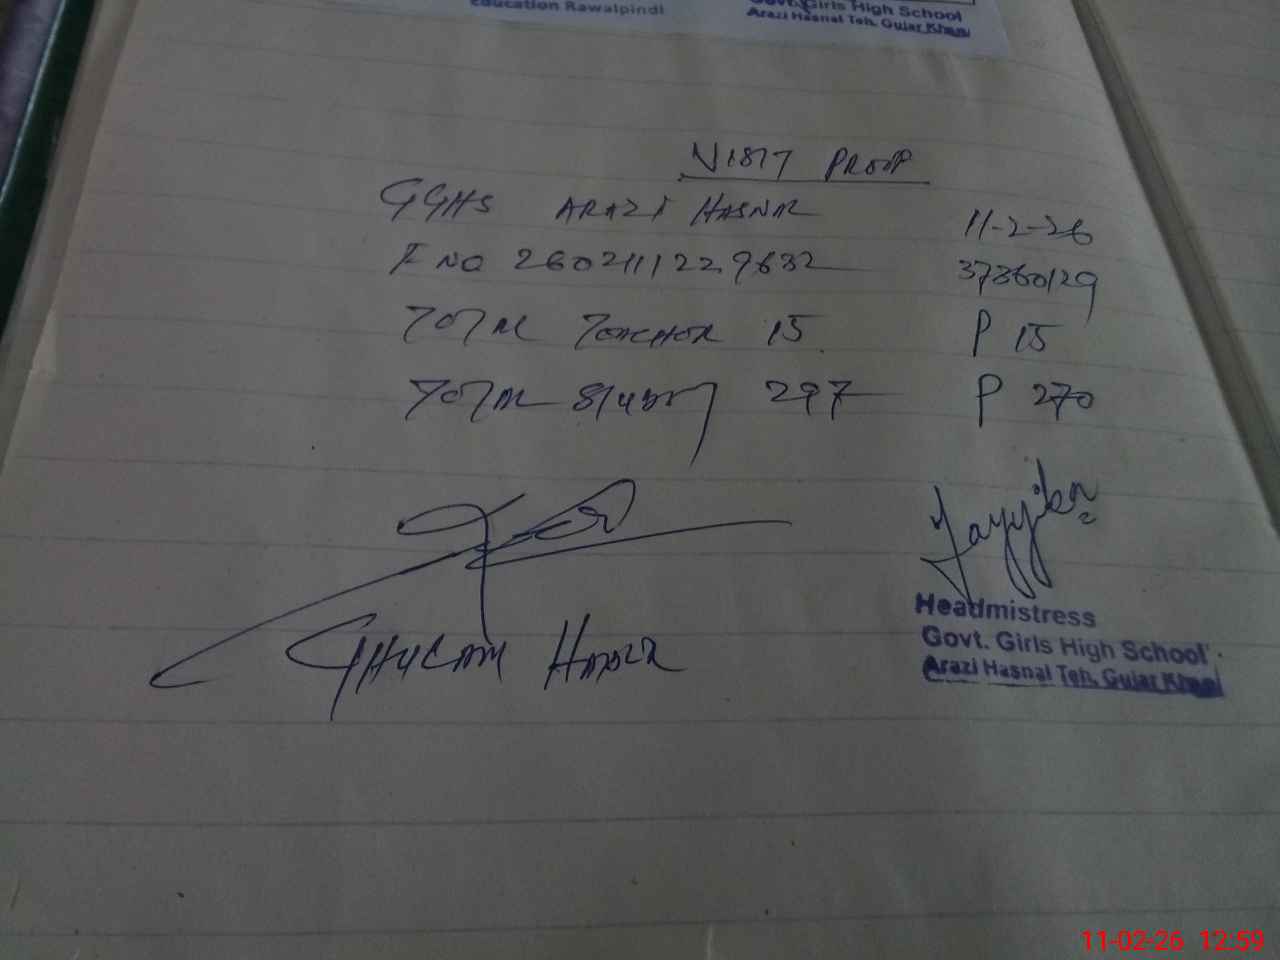 Education Rawalpindi
Govt. Girls High School
Arazi Hasnal Teh. Gujar Khan
VISIT PROOF
GGHS ARAZI HASNAL
11-2-26
F NO 2602111229632
37360129
TOTAL TEACHER 15
P 15
TOTAL STUDENT 297
P 270
Tayyiba
GHULAM HAIDER
Headmistress
Govt. Girls High School
Arazi Hasnal Teh. Gujar Khan
11-02-26 12:59